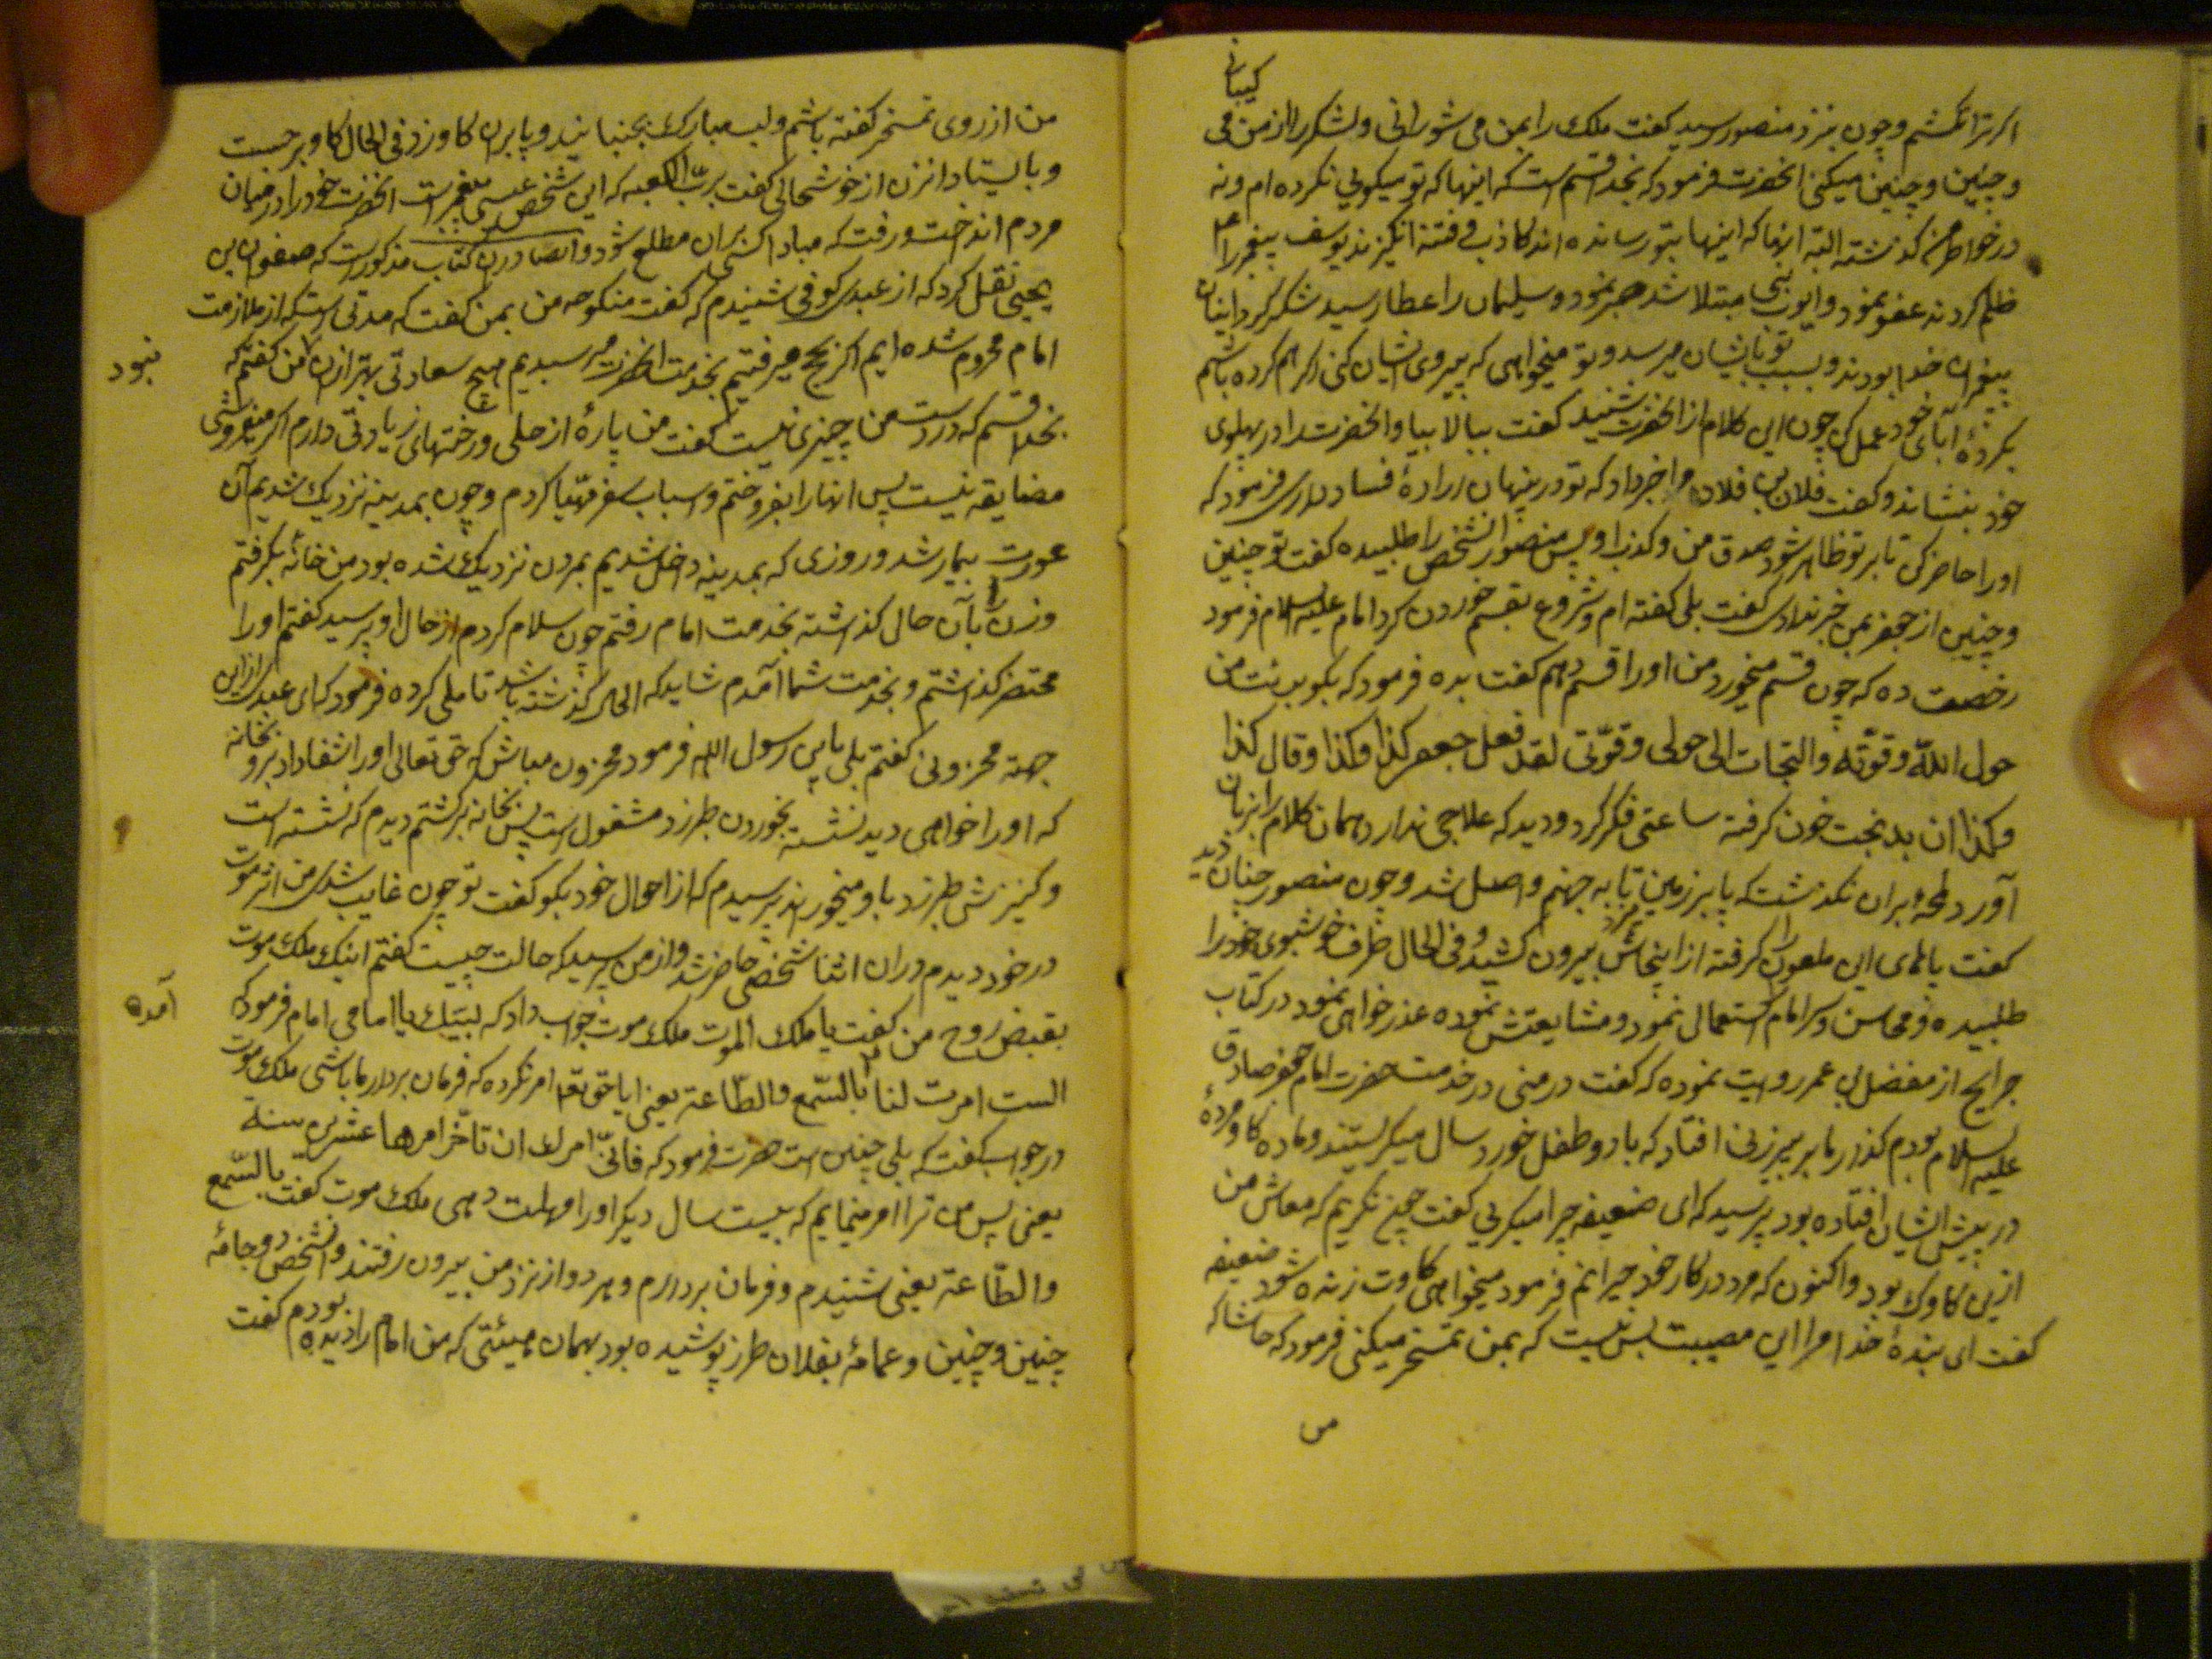 کیبانی
اکر ترا نکشم و چون بنزد منصور رسید کفت ملک را بمن می شورانی و لشکر را از من می
و چنین و چنین میکنی انحضرت فرمود که بخدا قسم است که اینها که تو میکویی نکرده ام و نه
در خواطر من کذشته البته انها که اینها بتو رسانده اند کاذب و فتنه انکیزند یوسف پیغمبر را
ظلم کردند عفو نمود و ایوب نبی مبتلا شد صبر نمود و سلیمان را عطا رسید شکر کرد اینان
پیغمبران خدا بودند و نسب تو بایشان میرسد و تو میخواهی که پیروی ایشان کنی
بکردهٔ آبای خود عمل کن چون این کلام از انحضرت شنید کفت ببالا بیا و انحضرت را در پهلوی
خود بنشاند و کفت فلان بن فلان مرا خبر داد که تو در پنهان ارادهٔ فساد داری فرمود که
او را حاضر کن تا بر تو ظاهر شود صدق من و کذب او پس منصور انشخص را طلبیده کفت تو چنین
و چنین از جعفر بمن خبر ندادی کفت بلی کفته ام و شروع بقسم خوردن کرد امام علیه السلام فرمود
رخصت ده که چون قسم میخورد من او را قسم دهم کفت بده فرمود که بکو برئت من
حول اللّه و قوّته و التجات الی حولی و قوّتی لقد فعل جعفر کذا و کذا و قال کذا
و کذا ان بدبخت خون کرفته ساعتی فکر کرد و دید که علاجی ندارد همان کلام را بزبان
آورد لمحهٔ بران نکذشت که پا بر زمین زد تا به جهنم واصل شد و چون منصور چنان دید
کفت پاهای این ملعون را کرفته از اینجاش بیرون کشید و فی الحال ظرف خوشبوی خود را
طلبیده و محاسن و سر امام استعمال نمود و مشایعتش نموده عذرخواهی نمود در کتاب
جرایح از مفضل بن عمر روایت نموده که کفت در منی در خدمت حضرت امام جعفر صادق
علیه السلام بودم کذار ما بر پیرزنی افتاد که با دو طفل خورد سال میکریستند و ماده کاو مردهٔ
در پیش ایشان افتاده بود پرسید که ای ضعیفه چرا میکریی کفت چون نکریم که معاش من
ازین کاوک بود و اکنون که مرد در کار خود حیرانم فرمود میخواهی کاوت زنده شود ضعیفه
کفت ای بندهٔ خدا مرا این مصیبت بس نیست که بمن تمسخر میکنی فرمود که حاشا که
من
من از روی تمسخر کفته باشم و لب مبارک بجنبانید و پا بران کاو زد فی الحال کاو برجست
و بایستاد انزن از خوشحالی کفت بربّ الکعبه که این شخص عیسی پیغمبر است انحضرت خود را در میان
مردم انداخت و رفت که مبادا کسی بران مطلع شود و ایضا در ان کتاب مذکور است که صفوان بن
یحیی نقل کرد که از عبدی کوفی شنیدم که کفت منکوحه من بمن کفت که مدتی است که از ملازمت
امام محروم شده ایم اکر بحج میرفتیم بخدمت انحضرت میرسیدیم هیچ سعادتی بهتر ازان نبود من کفتم که
بخدا قسم که در دست من چیزی نیست کفت من پارهٔ از حلی و رختهای زیادتی دارم اکر میفروشی
مضایقه نیست پس انها را بفروختم و اسباب سفر مهیّا کردم و چون بمدینه نزدیک شدیم آن
عورت بیمار شد و روزی که بمدینه داخل شدیم بمردن نزدیک شده بود من خانهٔ بکرفتم
و زن را بآن حالی کذاشته بخدمت امام رفتم چون سلام کردم از حال او پرسید کفتم او را
محتضر کذاشتم و بخدمت شما آمدم شاید که الحال کذشته باشد تاملی کرده فرمود که ای عبدی از این
جهته محزونی کفتم بلی یابن رسول اللّه فرمود محزون مباش که حق تعالی او را شفا داد برو بخانه
که او را خواهی دید نشسته بخوردن طبرزد مشغول است پس بخانه برکشتم دیدم که نشسته است
و کنیزش طبرزد باو میخوراند پرسیدم که از احوال خود بکو کفت تو چون غایب شدی من اثر موت
در خود دیدم دران اثنا شخصی حاضر شد و از من پرسید که حالت چیست کفتم اینک ملک موت
بقبض روح من آمده کفت یا ملک الموت ملک موت جواب داد که لبّیک یا امامی امام فرمود که
الست امرت لنا بالسّمع و الطّاعة یعنی ایا حق تعا امر نکرده که فرمان بردار ما باشی ملک موت
در جواب کفت که بلی چنین است حضرت فرمود که فانّی امرک ان تاخّر امرها عشرین سنة
یعنی پس من ترا امر مینمایم که بیست سال دیکر او را مهلت دهی ملک موت کفت بالسّمع
و الطّاعة یعنی شنیدم و فرمان بردارم و هر دو از نزد من بیرون رفتند و انشخص دو جامهٔ
چنین و چنین و عمامهٔ بفلان طرز پوشیده بود بهمان هیئتی که من امام را دیده بودم کفت